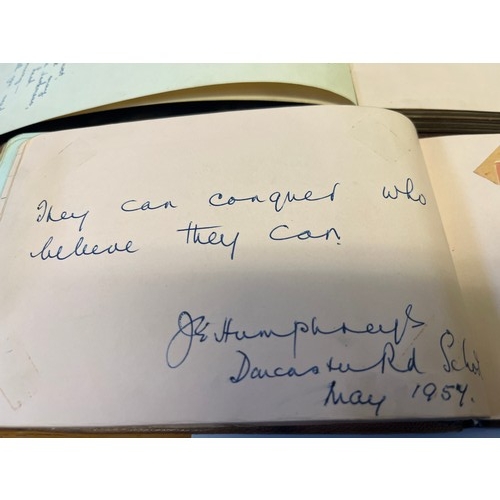 They can conquer who
believe they can.
J E Humphreys
Doncaster Rd Sch
May 1957.